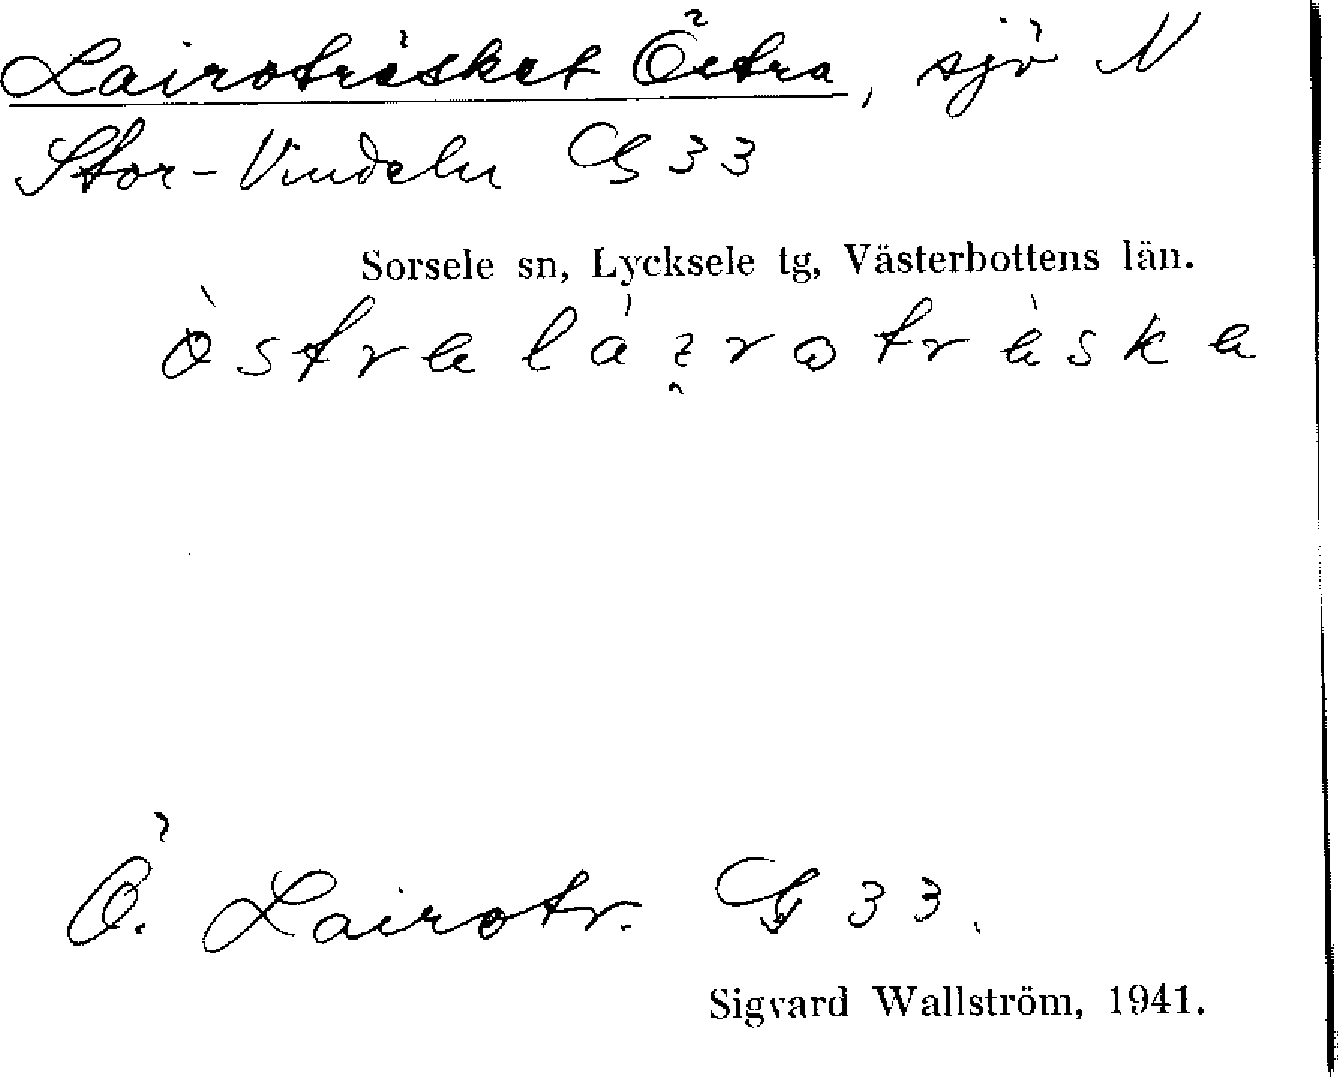 Lairoträsket Östra, sjö N
Stor-Vindeln G 33
Sorsele sn, Lycksele tg, Västerbottens län.
Ö. Lairotr. G 33.
Sigvard Wallström, 1941.